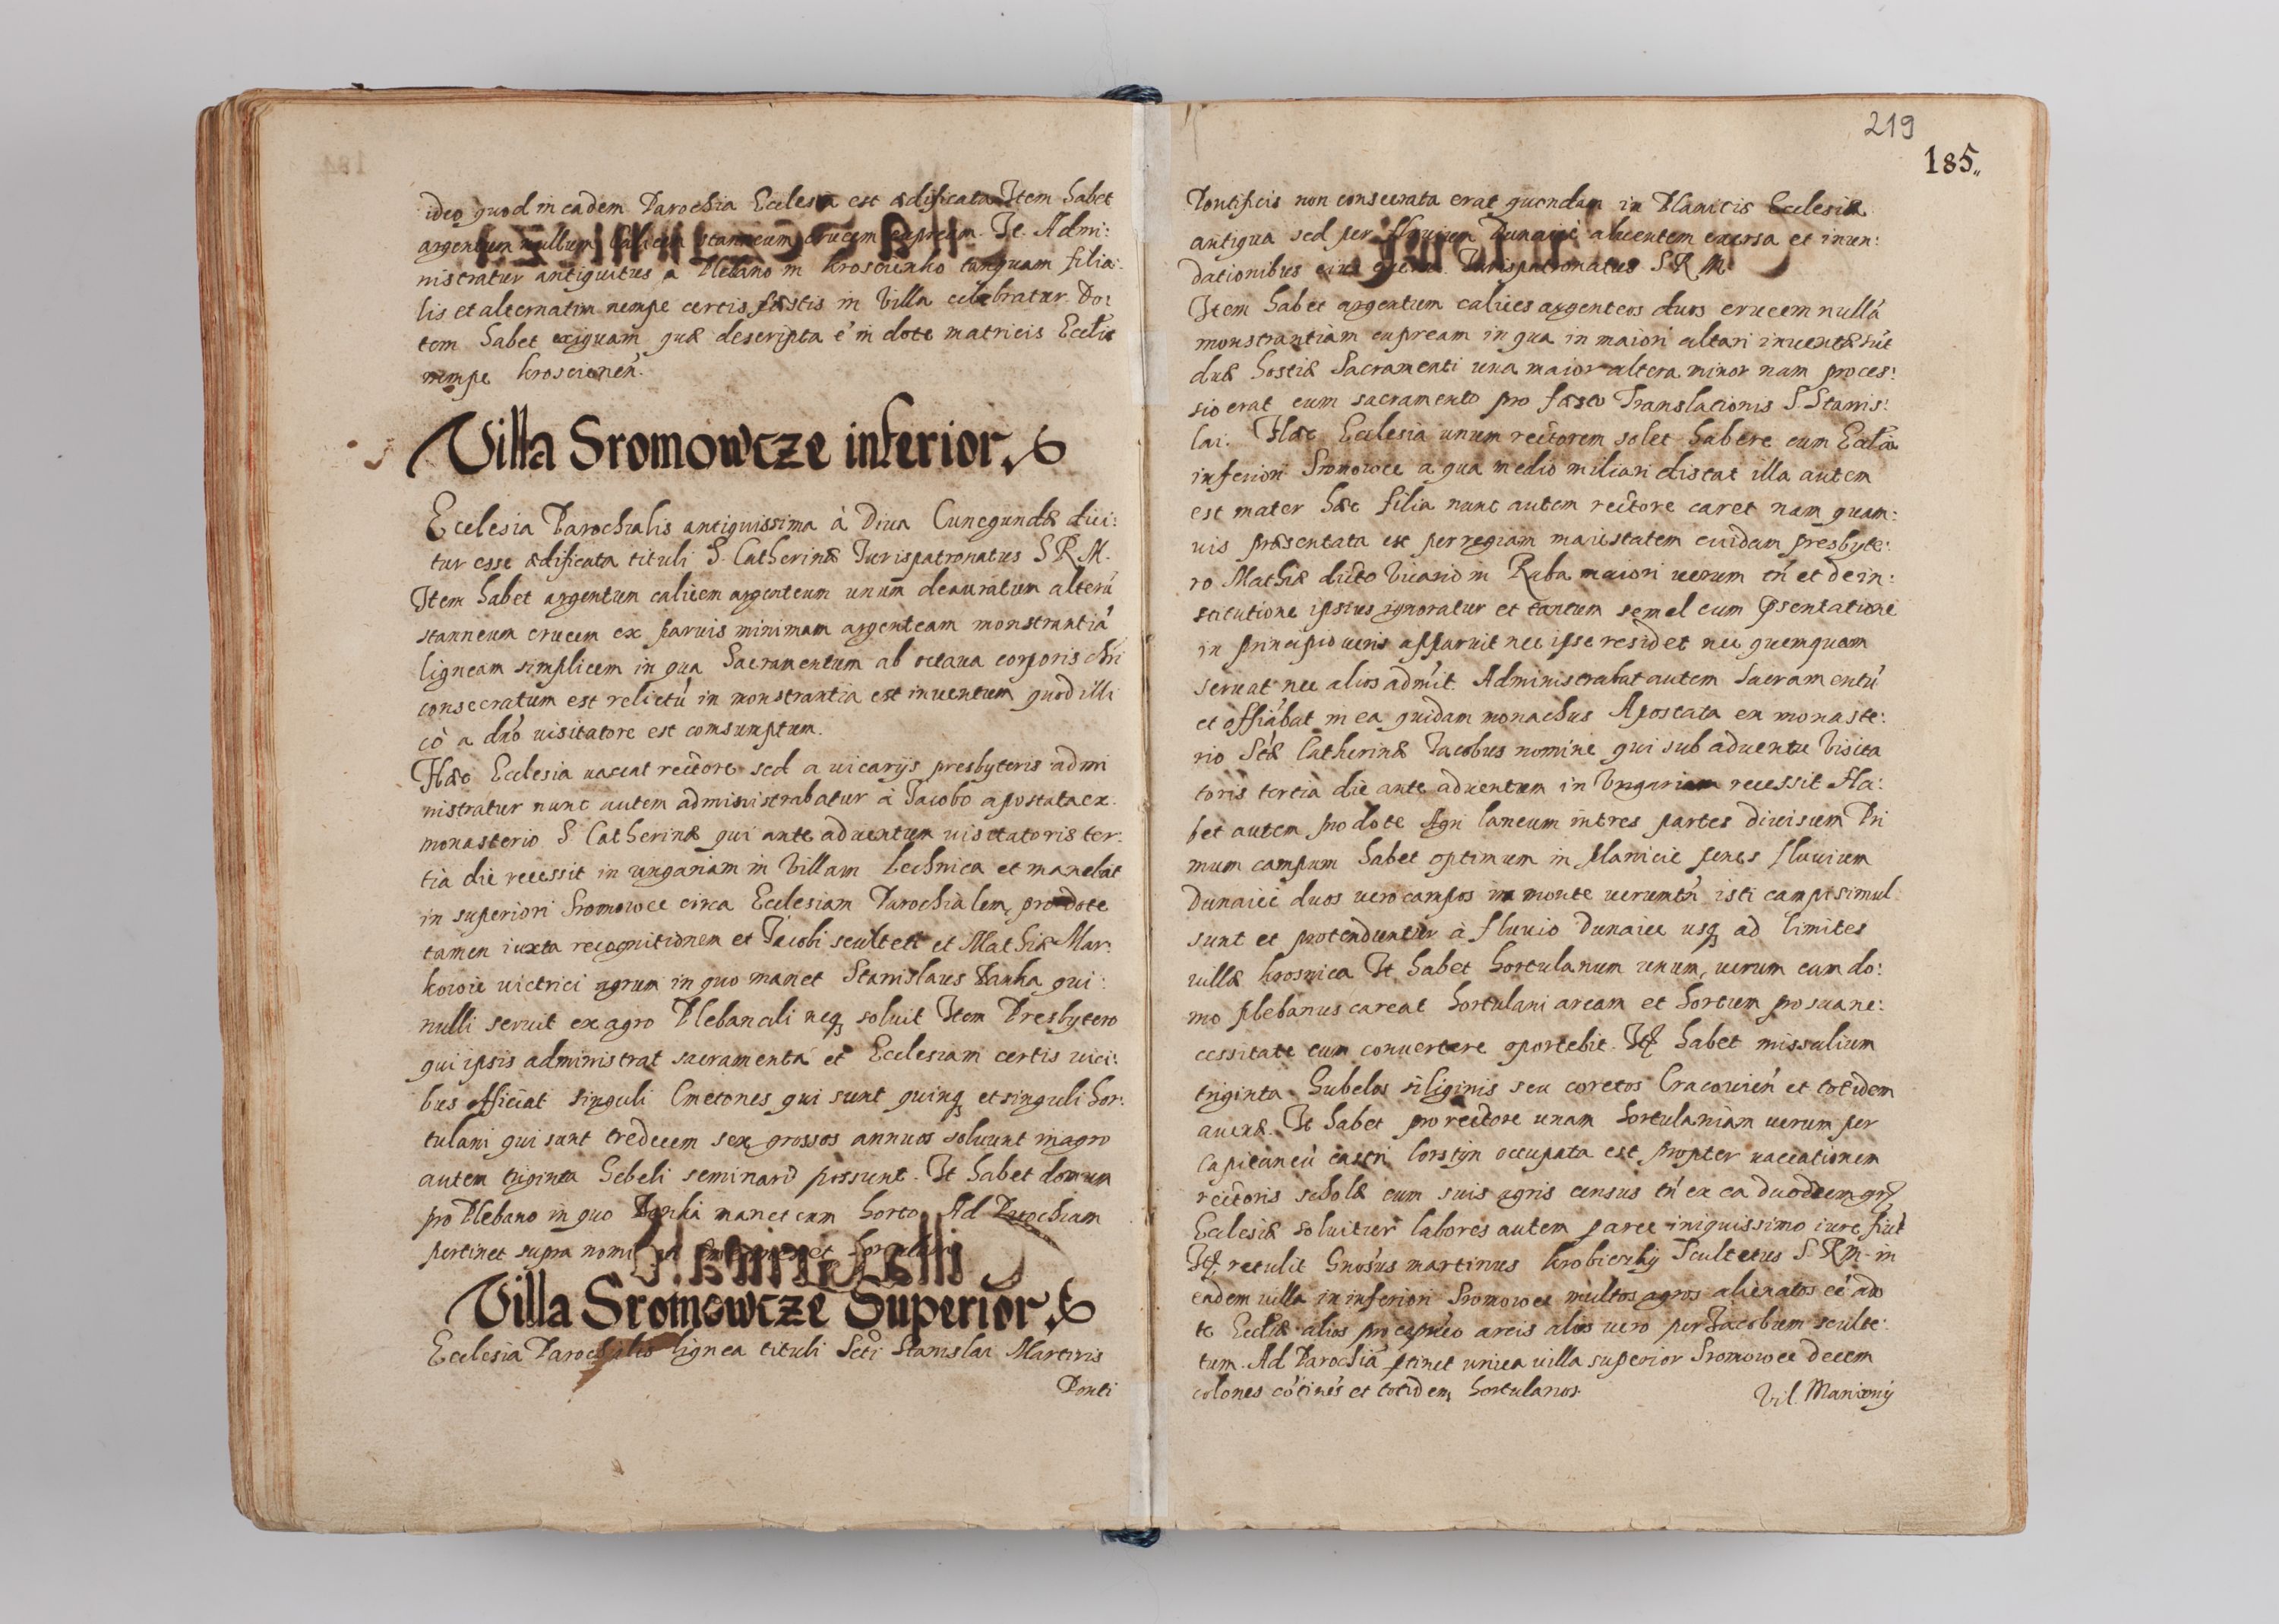 ideo quod in eadem Parochia Ecclesia est ædificata Item habet
argentum nullum Calicem stanneum crucem cupream. It. Admi:
nistratur antiquitus a Plebano in Kroscienko tanquam filia:
lis et alternatim nempe certis fæstis in Villa celebratur. Do:
tem habet exiguam quæ descripta é in dote matricis Eccliæ
nempe Kroscienen.
Villa Sromowcze inferior.
Ecclesia Parochialis antiquissima à Diua Cunegundæ dici:
tur esse ædificata tituli S. Catherinæ Jurispatronatus S R M.
Item habet argentum calicem argenteum unum deauratum alterú
stanneum crucem ex paruis minimam argenteam monstrantiá
ligneam simplicem in qua Sacramentum ab octaua corporis chri
consecratum est relictú in monstrantia est inuentum quod illi
co a dno uisitatore est comsumptum.
Hæc Ecclesia uaccat rectore sed a uicarijs presbyteris admi
nistratur nunc autem administrabatur à Jacobo apostata ex.
monasterio S. Catherinæ qui ante aduentum uisitatoris ter:
tia die recessit in ungariam in Villam Lechnica et manebat
in superiori Sromowce circa Ecclesiam Parochialem, pro dote
tamen iuxta recognitionem et Jacobi sculteti et Mathiæ Mar:
kowic uictrici agrum in quo manet Stanislaus Panka qui
nulli seruit ex agro Plebanali neq soluit Item Presbytero
qui ipsis administrat sacramenta et Ecclesiam certis uici:
bus officiat singuli Cmetones qui sunt quinq et singuli hor:
tulani qui sunt tredecem sex grossos annuos soluunt in agro
autem triginta Gebeli seminari possunt. It habet domum
pro Plebano in quo Panka manet cum horto. Ad Parochiam
pertinet supra
Villa Sromowcze Superior.
Ecclesia Parochialis lignea tituli Scti Stanislai Martiris
Ponti
219
185
Pontificis non consecrata erat quendam in Planicis Ecclesia
antiqua sed per fluuium Dunaiec aluentem euersa et inun:
dationibus eius Jurispatronatus S R M
Item habet argentum calices argenteos duos crucem nullá
monstrantiam cupream in qua in maiori altari inuentæ sút
duæ hostiæ Sacramenti una maior altera minor nam proces:
sio erat cum sacramento pro fæsto Translationis S. Stanis:
lai. Hæc Ecclesia unum rectorem solet habere cum Eccliá
inferiori Sromowce a qua medio miliari distat illa autem
est mater hæc filia nunc autem rectore caret nam quam:
uis præsentata est per regiam maiestatem cuidam presbyte:
ro Mathiæ dicto Vicario in Raba maiori uerum tn et de in:
stitutione ipsius ignoratur et tantum semel cum psentatione
in principio ueris apparuit nec ipse residet nec quemquam
seruat nec alios admit. Administrabat autem sacramentú
et offiabat in ea quidam monachus Apostata ex monaste:
rio Stæ Catherinæ Jacobus nomine qui sub aduentu Visita
toris tertia die ante aduentum in Vngariam recessit Ha:
bet autem pro dote Agri laneum in tres partes diuisum Pri
mum campum habet optimum in planicie penes fluuium
Dunaiec duos uero campos in monte uerumtn isti campi simul
sunt et protenduntur à fluuio Dunaiec usq ad limites
uillæ Krosnica It habet hortulanum unum, uerum cum do:
mo plebanus careat hortulani aream et hortum pro sua ne:
cessitate eum conuertere oportebit. It habet missalium
triginta Gubelos siliginis seu coretos Cracouien et totidem
auenæ. It habet pro rectore unam hortulaniam uerum per
Capitaneú castri Corstyn occupata est propter uaccationem
rectoris scholæ cum suis agris census tn ex ea duodecim gr
Ecclesiæ soluitur labores autem parce iniquissimo iure fiút
It retulit Gnosus martinus Krobiczky Scultetus S R M in
eadem uilla in inferiori Sromowce multos agros alienatos eé a do
te Eccliæ alios pro arcis alios uero per Jacobum sculte:
tum. Ad Parochiá ptinet unica uilla superior Sromowce decem
colones cótinés et totidem hortulanos.
Vil. Maniowy